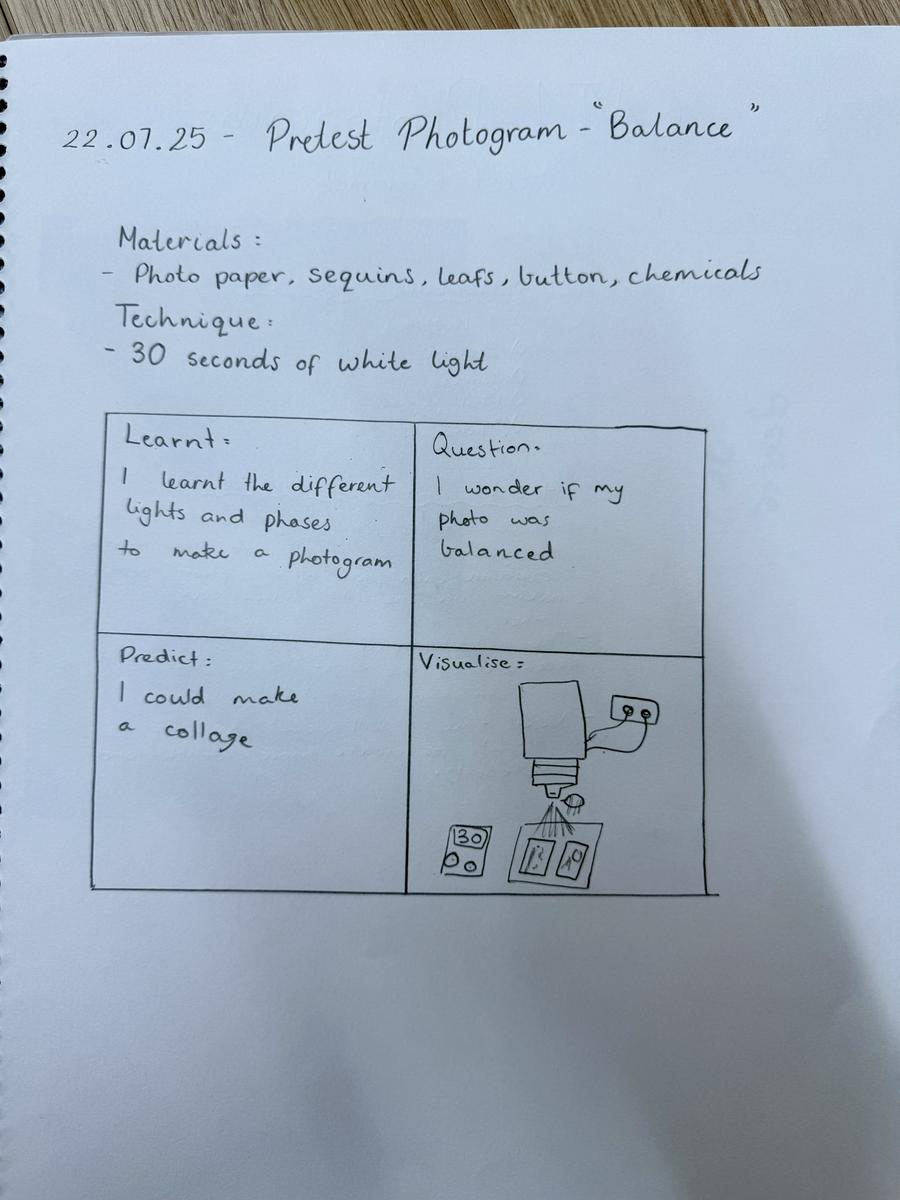 22.07.25 - Pretest Photogram - "Balance"
Materials :
- Photo paper, sequins, leafs, button, chemicals
Technique :
- 30 seconds of white light
Learnt :
I learnt the different
lights and phases
to make a photogram
Question.
I wonder if my
photo was
balanced
Predict :
I could make
a collage
Visualise :
30